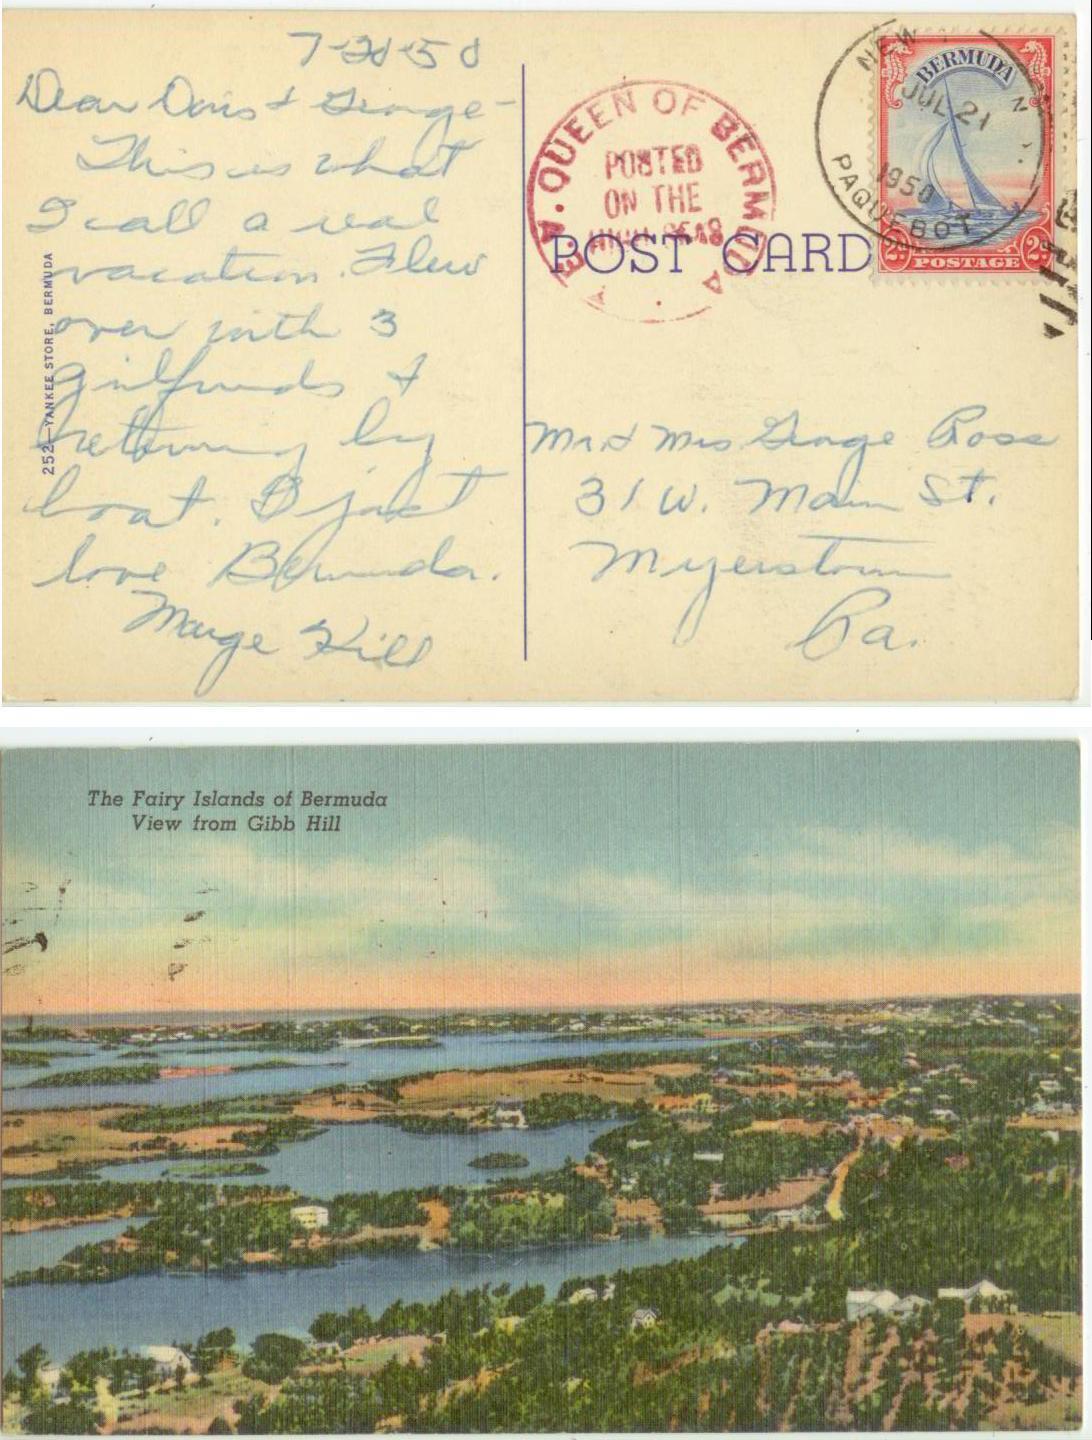 7-20-50
Dear Doris & George -
This is what
I call a real
vacation. Flew
over with 3
girlfriends &
returning by
boat. I just
love Bermuda.
Marge Hill
252—YANKEE STORE, BERMUDA
QUEEN OF BERMUDA
POSTED
ON THE
HIGH SEAS
POST CARD
NEW
JUL 21
1950
PAQUEBOT
BERMUDA
2d POSTAGE 2d
Mr & Mrs George Ross
31 W. Main St.
Myerstown
Pa.
The Fairy Islands of Bermuda
View from Gibb Hill